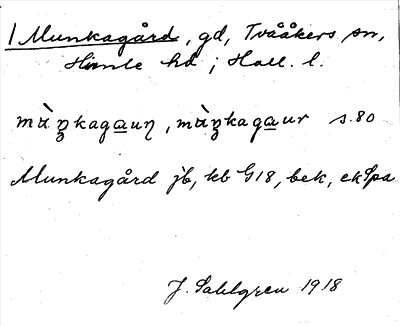 1 Munkagård, gd, Tvååkers sn,
Himle hd ; Hall. l.
s. 80
Munkagård jb, kb G18, bek, ekSpa
J. Sahlgren 1918